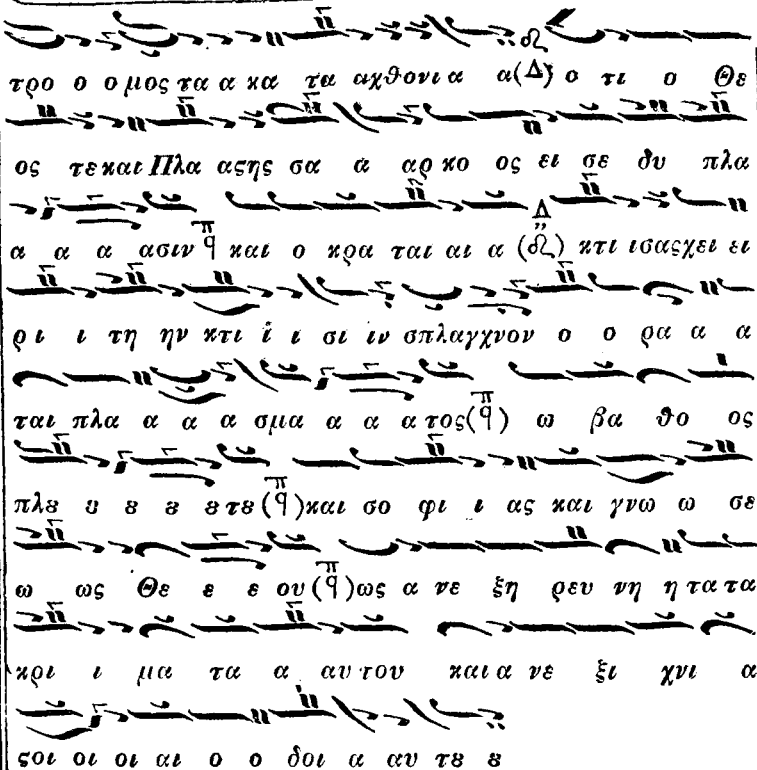 τρο ο ο μος τα α κα τα αχθονι α α (Δ) ο τι ο Θε
ος τε και Πλα αϛης σα α αρ κο ος ει σε δυ πλα
α α α ασιν και ο κρα ται αι α κτι ισας χει ει
ρι ι τη ην κτι ι ι σι ιν σπλαγχνον ο ο ρα α α
ται πλα α α α σμα α α α τος ω βα θο ος
πλȣ ȣ ȣ ȣ ȣ τȣ και σο φι ι ας και γνω ω σε
ω ως Θε ε ε ου ως α νε ξη ρευ νη η τα τα
κρι ι μα τα α αυ του και α νε ξι χνι α
ϛοι οι οι αι ο ο δοι α αυ τȣ ȣ